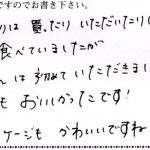 ですのでお書き下さい。
りは 買ったり いただいたりし
食べていましたが
んは 初めて いただきまし
も おいしかったです!
ケージも かわいいですね